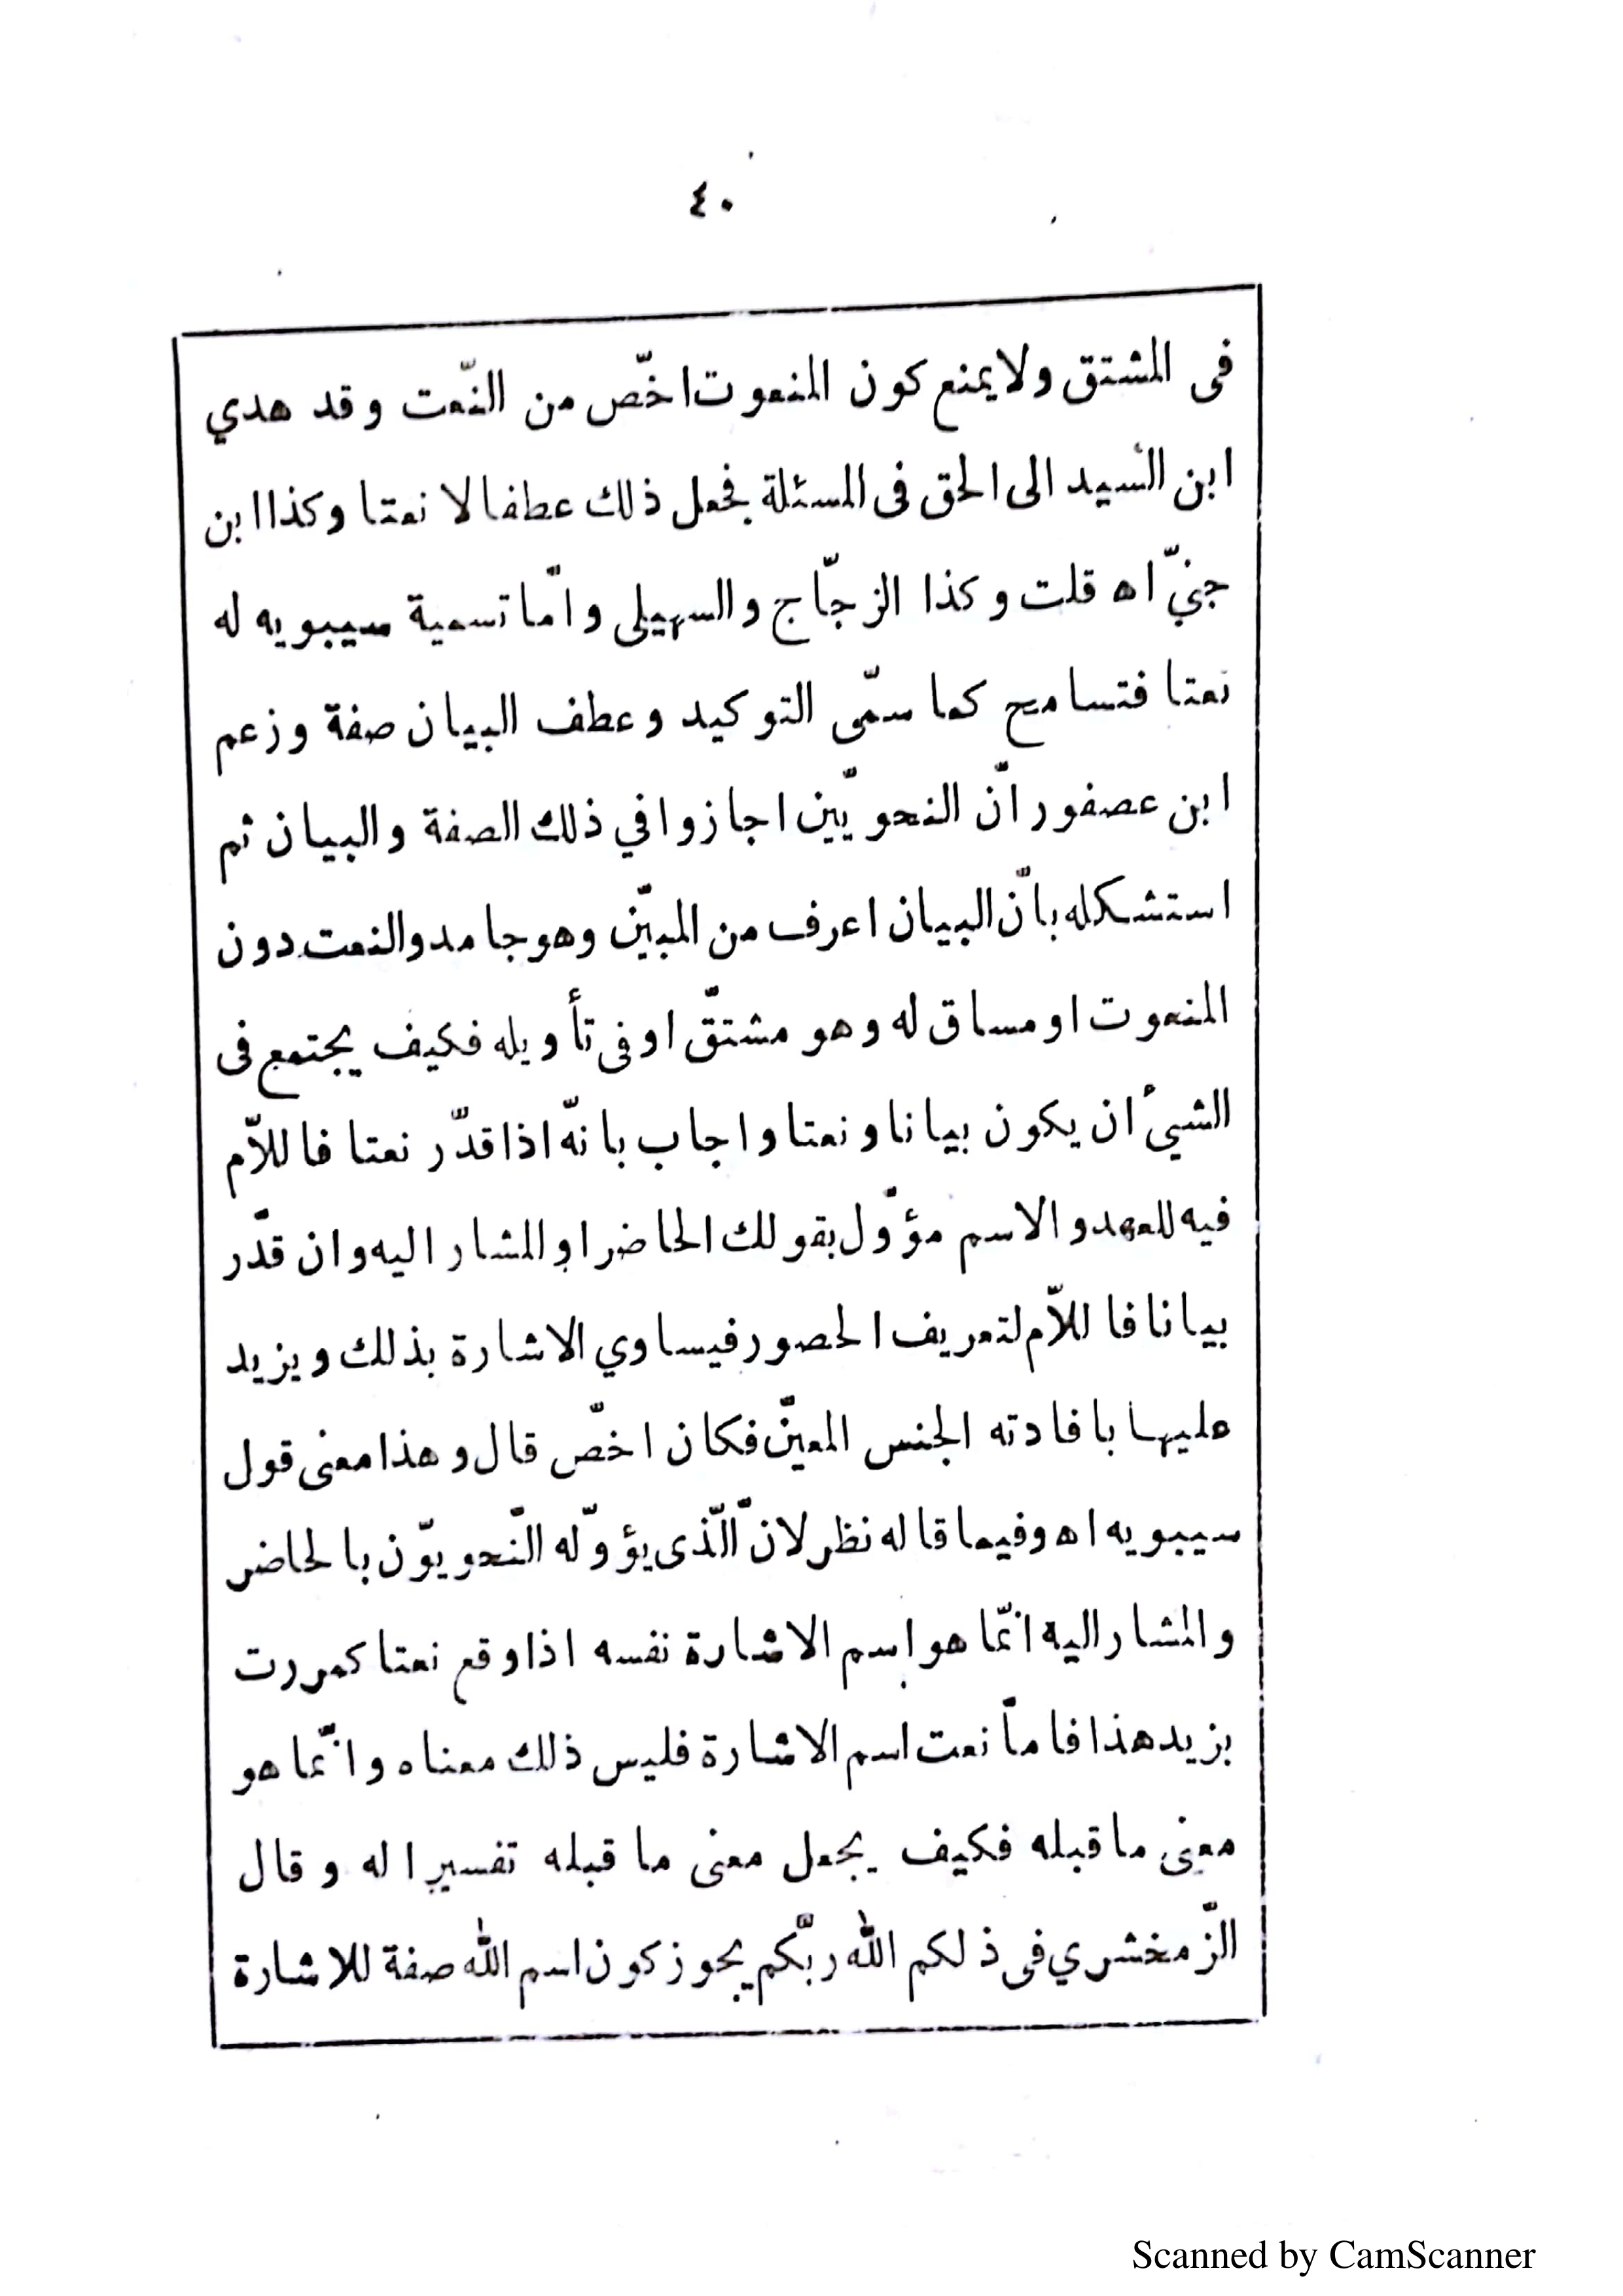 ٤٠
فى المشتق ولا يمنع كون المنعوت اخّص من النّعت وقد هدي
ابن السيد الى الحق فى المسئلة فجعل ذلك عطفا لا نعتا وكذا ابن
جنيّ اه قلت وكذا الزجّاج والسهيلى وامّا تسمية سيبويه له
نعتا فتسامح كما سمّى التوكيد وعطف البيان صفة وزعم
ابن عصفور انّ النحويّين اجازوا في ذلك الصفة والبيان ثم
استشكله بانّ البيان اعرف من المبيّن وهو جامد والنعت دون
المنعوت او مساق له وهو مشتقّ او فى تأويله فكيف يجتمع فى
الشيئ ان يكون بيانا ونعتا واجاب بانّه اذا قدّر نعتا فاللاّم
فيه للعهد والاسم مؤوّل بقولك الحاضر او المشار اليه وان قدّر
بيانا فاللاّم لتعريف الحصور فيساوي الاشارة بذلك ويزيد
عليها بافادته الجنس المعيّن فكان اخصّ قال وهذا معنى قول
سيبويه اه وفيما قاله نظر لانّ الّذى يؤوّله النّحويوّن بالحاضر
والمشار اليه انّما هو اسم الاشارة نفسه اذا وقع نعتا كمررت
بزيد هذا فامّا نعت اسم الاشارة فليس ذلك معناه وانّما هو
معنى ما قبله فكيف يجعل معنى ما قبله تفسيرا له وقال
الزّمخشري فى ذلكم الله ربّكم يجوز كون اسم الله صفة للاشارة
Scanned by CamScanner